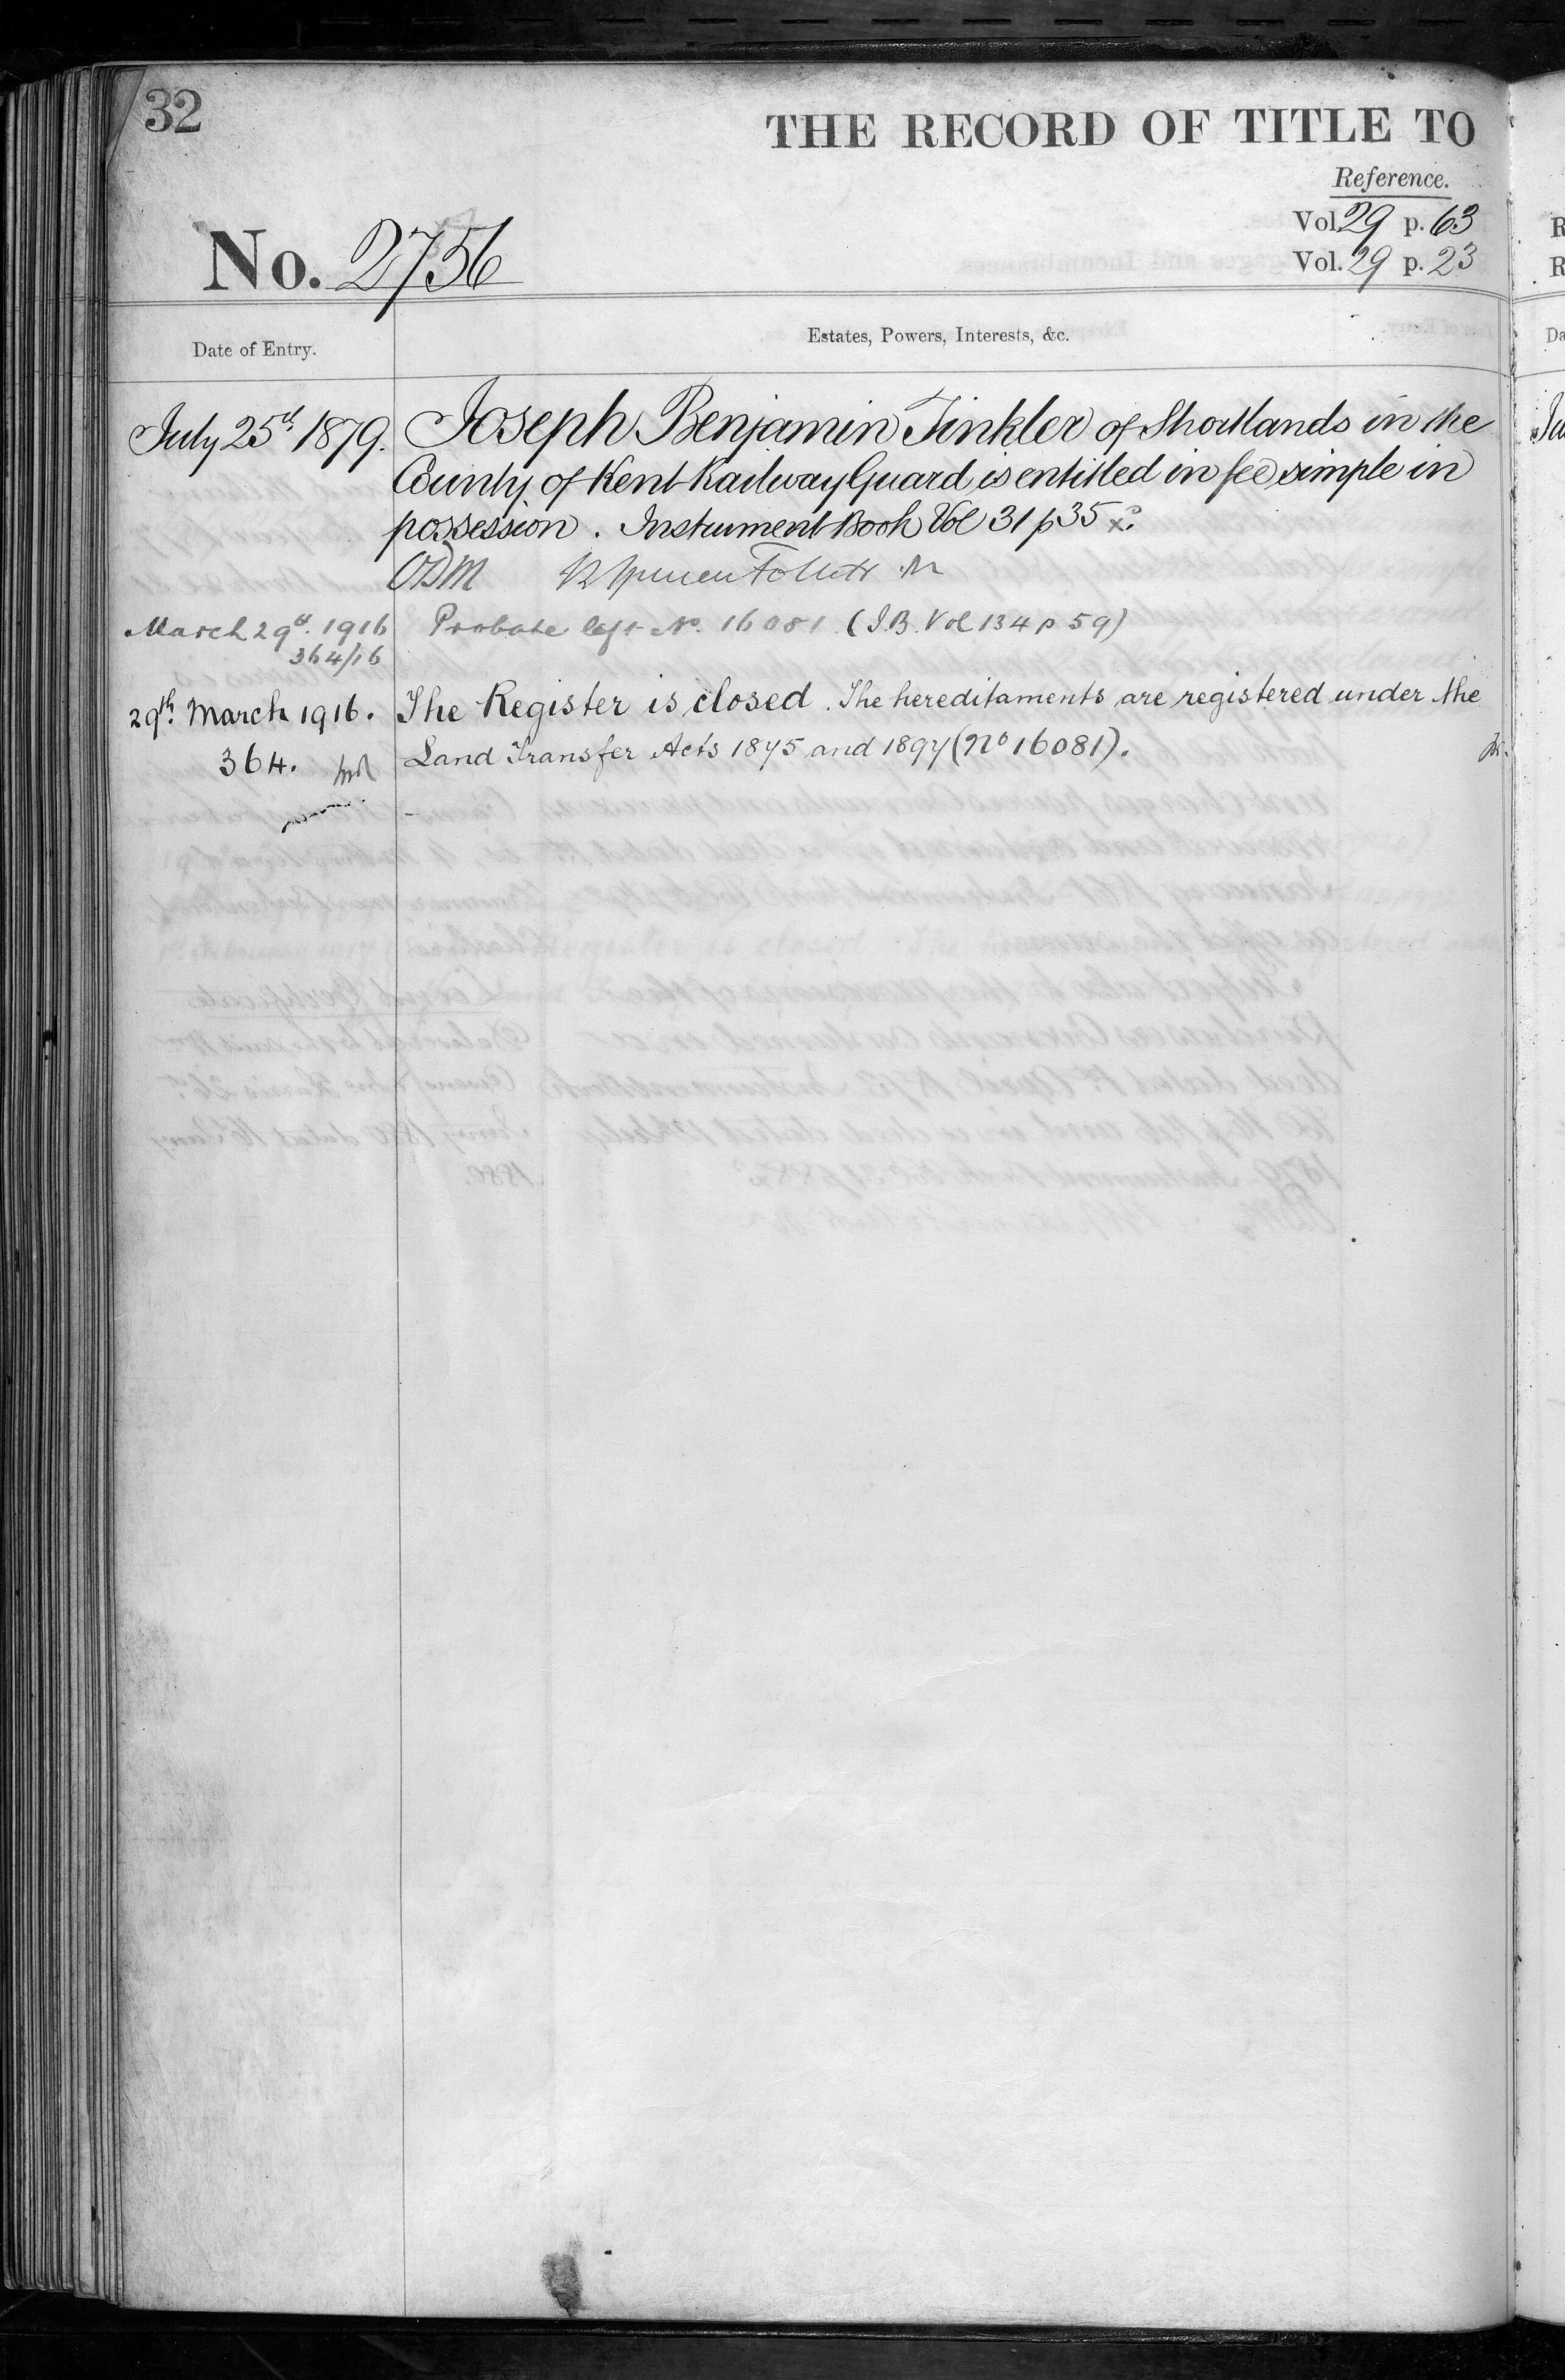 32
THE RECORD OF TITLE TO
Reference.
Vol. 29 p. 63
No. 2756
Vol. 29 p. 23
Date of Entry.
Estates, Powers, Interests, &c.
July 25th 1879. Joseph Benjamin Tinkler of Shortlands in the
County of Kent Railway Guard is entitled in fee simple in
possession. Instrument Book Vol 31 p 35
ODM
March 29th. 1916 Probate left No. 16081 (I.B. Vol 134 p 59)
364/16
29th March 1916. The Register is closed. The hereditaments are registered under the
364. Land Transfer Acts 1875 and 1897 (No 16081).